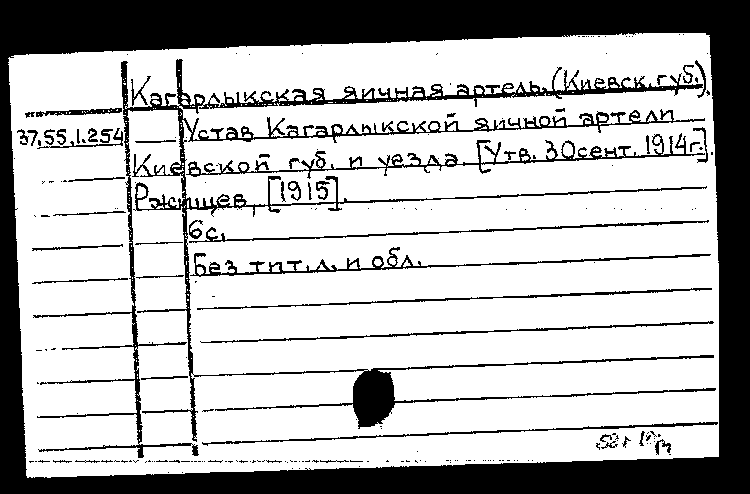 Кагарлыкская яичная артель. (Киевск. губ.).
37.55.1.254 Устав Кагарлыкской яичной артели
Киевской губ. и уезда. [Утв. 30 сент. 1914г.].
Ржищев, [1915].
6с.
Без тит. л. и обл.